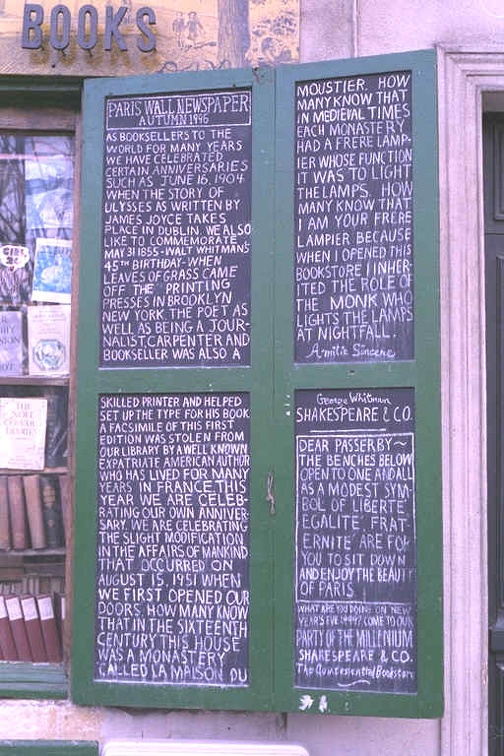 BOOKS
PARIS WALL NEWSPAPER
AUTUMN 1996
AS BOOKSELLERS TO THE
WORLD FOR MANY YEARS
WE HAVE CELEBRATED
CERTAIN ANNIVERSARIES
SUCH AS JUNE 16, 1904
WHEN THE STORY OF
ULYSSES AS WRITTEN BY
JAMES JOYCE TAKES
PLACE IN DUBLIN. WE ALSO
LIKE TO COMMEMORATE
MAY 31 1855 - WALT WHITMAN'S
45TH BIRTHDAY - WHEN
LEAVES OF GRASS CAME
OFF THE PRINTING
PRESSES IN BROOKLYN
NEW YORK THE POET AS
WELL AS BEING A JOUR-
NALIST, CARPENTER AND
BOOKSELLER WAS ALSO A
SKILLED PRINTER AND HELPED
SET UP THE TYPE FOR HIS BOOK
A FACSIMILE OF THIS FIRST
EDITION WAS STOLEN FROM
OUR LIBRARY BY A WELL KNOWN
EXPATRIATE AMERICAN AUTHOR
WHO HAS LIVED FOR MANY
YEARS IN FRANCE THIS
YEAR WE ARE CELEB-
RATING OUR OWN ANNIVER-
SARY. WE ARE CELEBRATING
THE SLIGHT MODIFICATION
IN THE AFFAIRS OF MANKIND
THAT OCCURRED ON
AUGUST 15, 1951 WHEN
WE FIRST OPENED OUR
DOORS. HOW MANY KNOW
THAT IN THE SIXTEENTH
CENTURY THIS HOUSE
WAS A MONASTERY
CALLED LA MAISON DU
MOUSTIER. HOW
MANY KNOW THAT
IN MEDIEVAL TIMES
EACH MONASTERY
HAD A FRERE LAMP-
IER WHOSE FUNCTION
IT WAS TO LIGHT
THE LAMPS. HOW
MANY KNOW THAT
I AM YOUR FRERE
LAMPIER BECAUSE
WHEN I OPENED THIS
BOOKSTORE I INHER-
ITED THE ROLE OF
THE MONK WHO
LIGHTS THE LAMPS
AT NIGHTFALL.
Amitie Sincere
George Whitman
SHAKESPEARE & CO.
DEAR PASSERBY~
THE BENCHES BELOW
OPEN TO ONE AND ALL
AS A MODEST SYM-
BOL OF LIBERTE'
EGALITE', FRAT-
ERNITE' ARE FOR
YOU TO SIT DOWN
AND ENJOY THE BEAUTY
OF PARIS
WHAT ARE YOU DOING ON NEW
YEAR'S EVE 1999? COME TO OUR
PARTY OF THE MILLENIUM
SHAKESPEARE & CO.
The Quintessential Bookstore